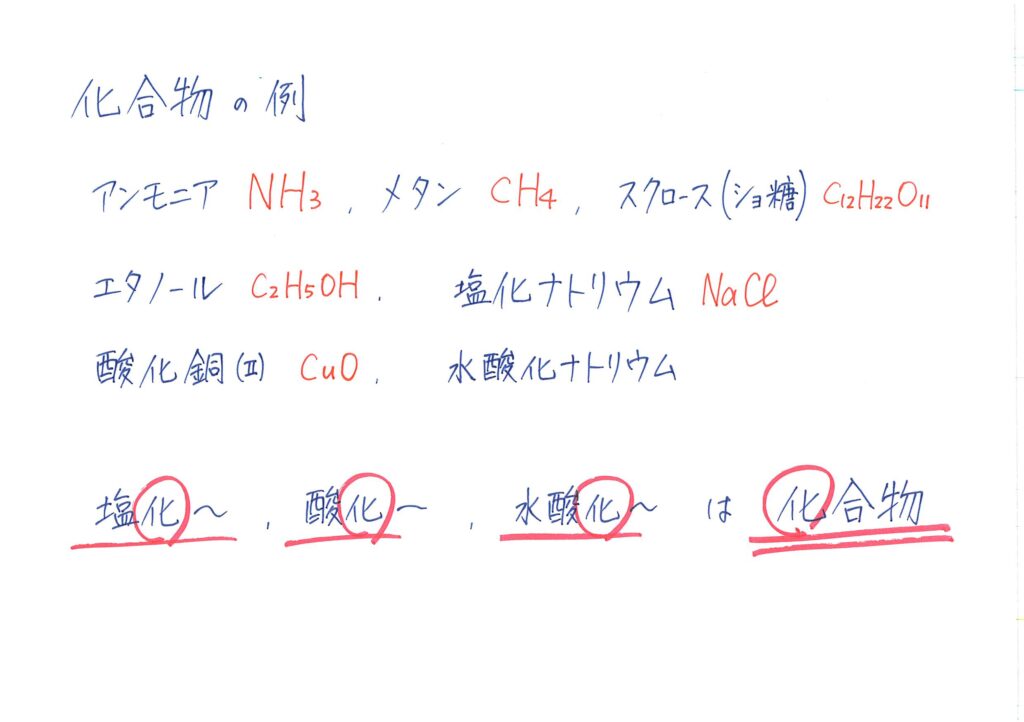 化合物の例
アンモニア NH3, メタン CH4, スクロース(ショ糖) C12H22O11
エタノール C2H5OH, 塩化ナトリウム NaCl
酸化銅(Ⅱ) CuO, 水酸化ナトリウム
塩化〜, 酸化〜, 水酸化〜 は 化合物